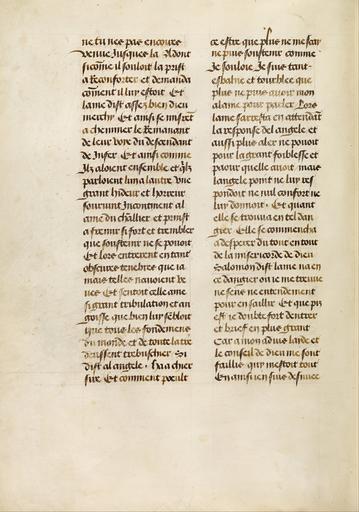 ne tu nes pas encores
venue Jusques la Adont
sicome il souloit la prist
a Reconforter et demanda
coment il luy estoit Et
lame dist assez bien dieu
mercy Et ainsi se misret
a chemner le Remanant
de leur voye du descendant
de Infer Et ainsi comme
Ilz aloient ensemble et qlz
parloient lun a lautre vne
grant hideur et horreur
Incontinent al
ame du chlier et prinst
a fremir si fort et trembler
que soustenir ne se pouoit
Et lors entrerent en tant
obscures tenebres que ia
mais telles nauoient ve
ues Et sentoit celle ame
si grant tribulation et an
goisse que bien luy sebloit
que tous les fondemens
du monde et de toute la tre
deussent trebuschier Si
dist al angele ha a chier
sire Et comment poeult
ce estre que plus ne me scay
ne puis soustenir comme
Je souloie Je suis tant
esbahie et tourblee que
plus ne puis auoir mon
alaine pour parler Lors
lame sarresta en attendat
la response del angele et
aussi plus aler ne pouoit
pour la grant foiblesse et
paour quelle auoit mais
langele point ne luy res
pondoit ne nul confort ne
luy donnoit Et quant
elle se trouua en tel dan
gier Elle se commencha
a desperer du tout en tout
de la misericorde de dieu
dist lame va en
ce dangier ou ie me treuue
ne scens ne entendement
pour en saillir Et que pis
est ie doubte fort dentrer
et brief en plus grant
Car a mon aduis laide et
le conseil de dieu me sont
faillis qui mestoit tout
En ainsi ien suis desnuee